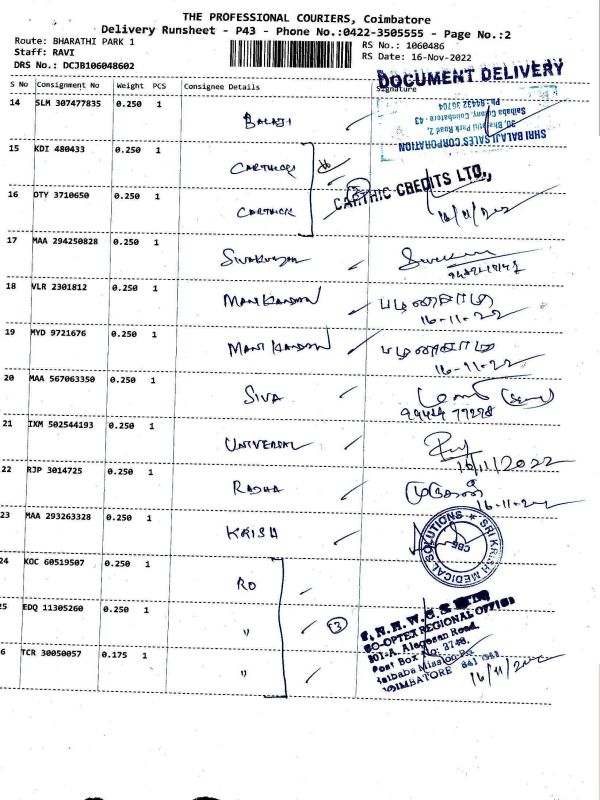 THE PROFESSIONAL COURIERS, Coimbatore
Delivery Runsheet - P43 - Phone No.:0422-3505555 - Page No.:2
Route: BHARATHI PARK 1
RS No.: 1060486
Staff: RAVI
RS Date: 16-Nov-2022
DRS No.: DCJB106048602
S No Consignment No Weight PCS Consignee Details Signature
DOCUMENT DELIVERY
14 SLM 307477835 0.250 1 BALAJI
SHRI BALAJI SALES CORPORATION
30, Bharathi Park Road 2,
Saibaba Colony, Coimbatore - 43
Ph: 94432 36704
15 KDI 480433 0.250 1 CARTHICK
CARTHIC CREDITS LTD.,
16 OTY 3710650 0.250 1 CARTHICK
16/11/2022
17 MAA 294250828 0.250 1 SIVAKUMAR
18 VLR 2301812 0.250 1 MANIKANDAN பழனிசாமி
16-11-22
19 MYD 9721676 0.250 1 MANIKANDAN பழனிசாமி
16-11-22
20 MAA 567063350 0.250 1 SIVA
99424 77278
21 IXM 502544193 0.250 1 UNIVERSAL
16/11/2022
22 RJP 3014725 0.250 1 RADHA முருகன்
16-11-22
23 MAA 293263328 0.250 1 KRISH
SRI KRISH MEDICAL SOLUTIONS
CBE
24 KOC 60519507 0.250 1 RO
25 EDQ 11305260 0.250 1 "
3
T.N.H.W.C.S
CO-OPTEX REGIONAL OFFICE
201-A, Alagesan Road,
Post Box No: 3748,
Saibaba Mission
COIMBATORE 641
6 TCR 30050057 0.175 1 "
16/11/2022